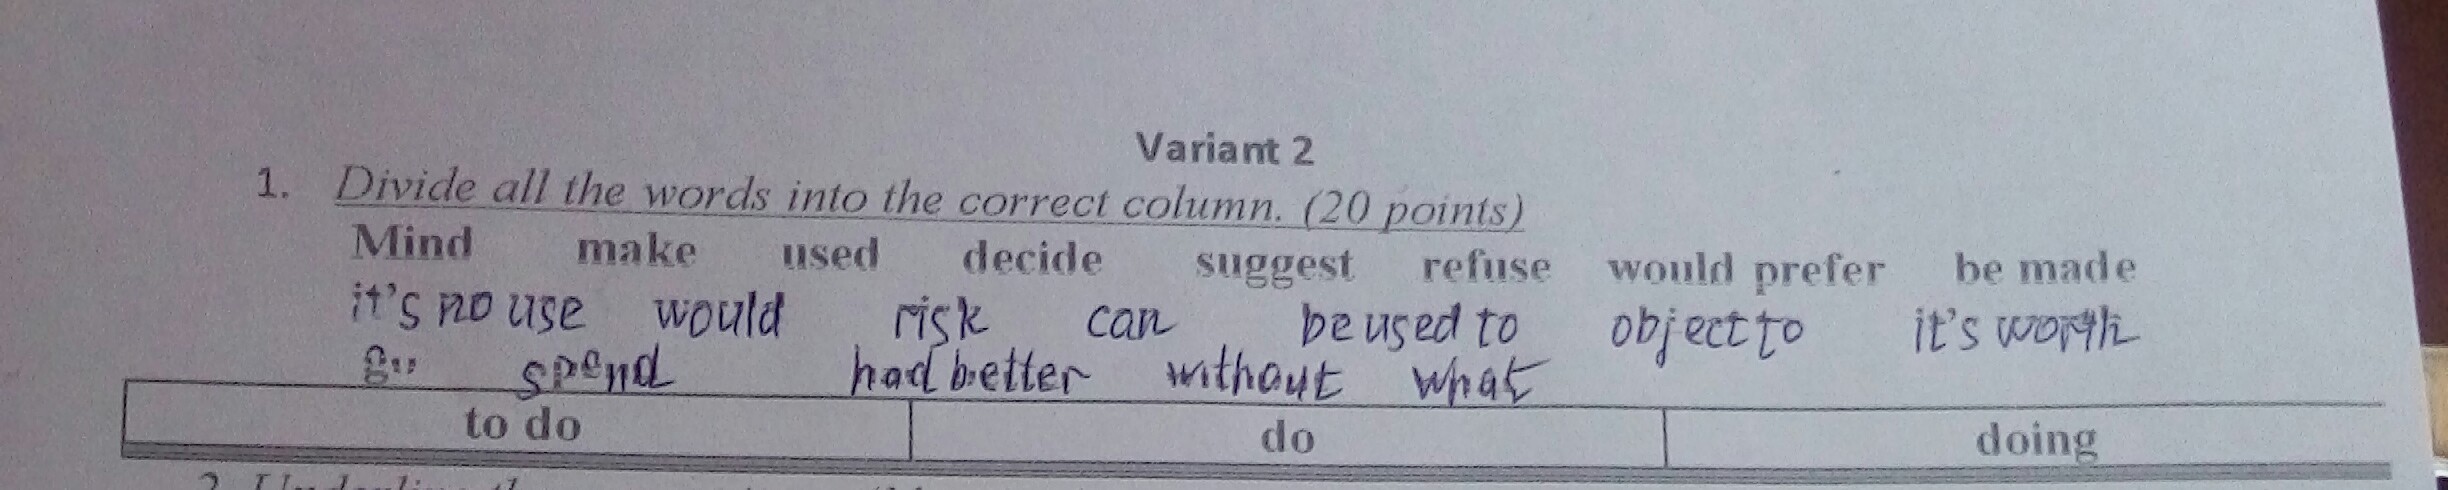 Variant 2
1. Divide all the words into the correct column. (20 points)
Mind make used decide suggest refuse would prefer be made
it's no use would risk can be used to object to it's worth
spend had better without what
to do do doing